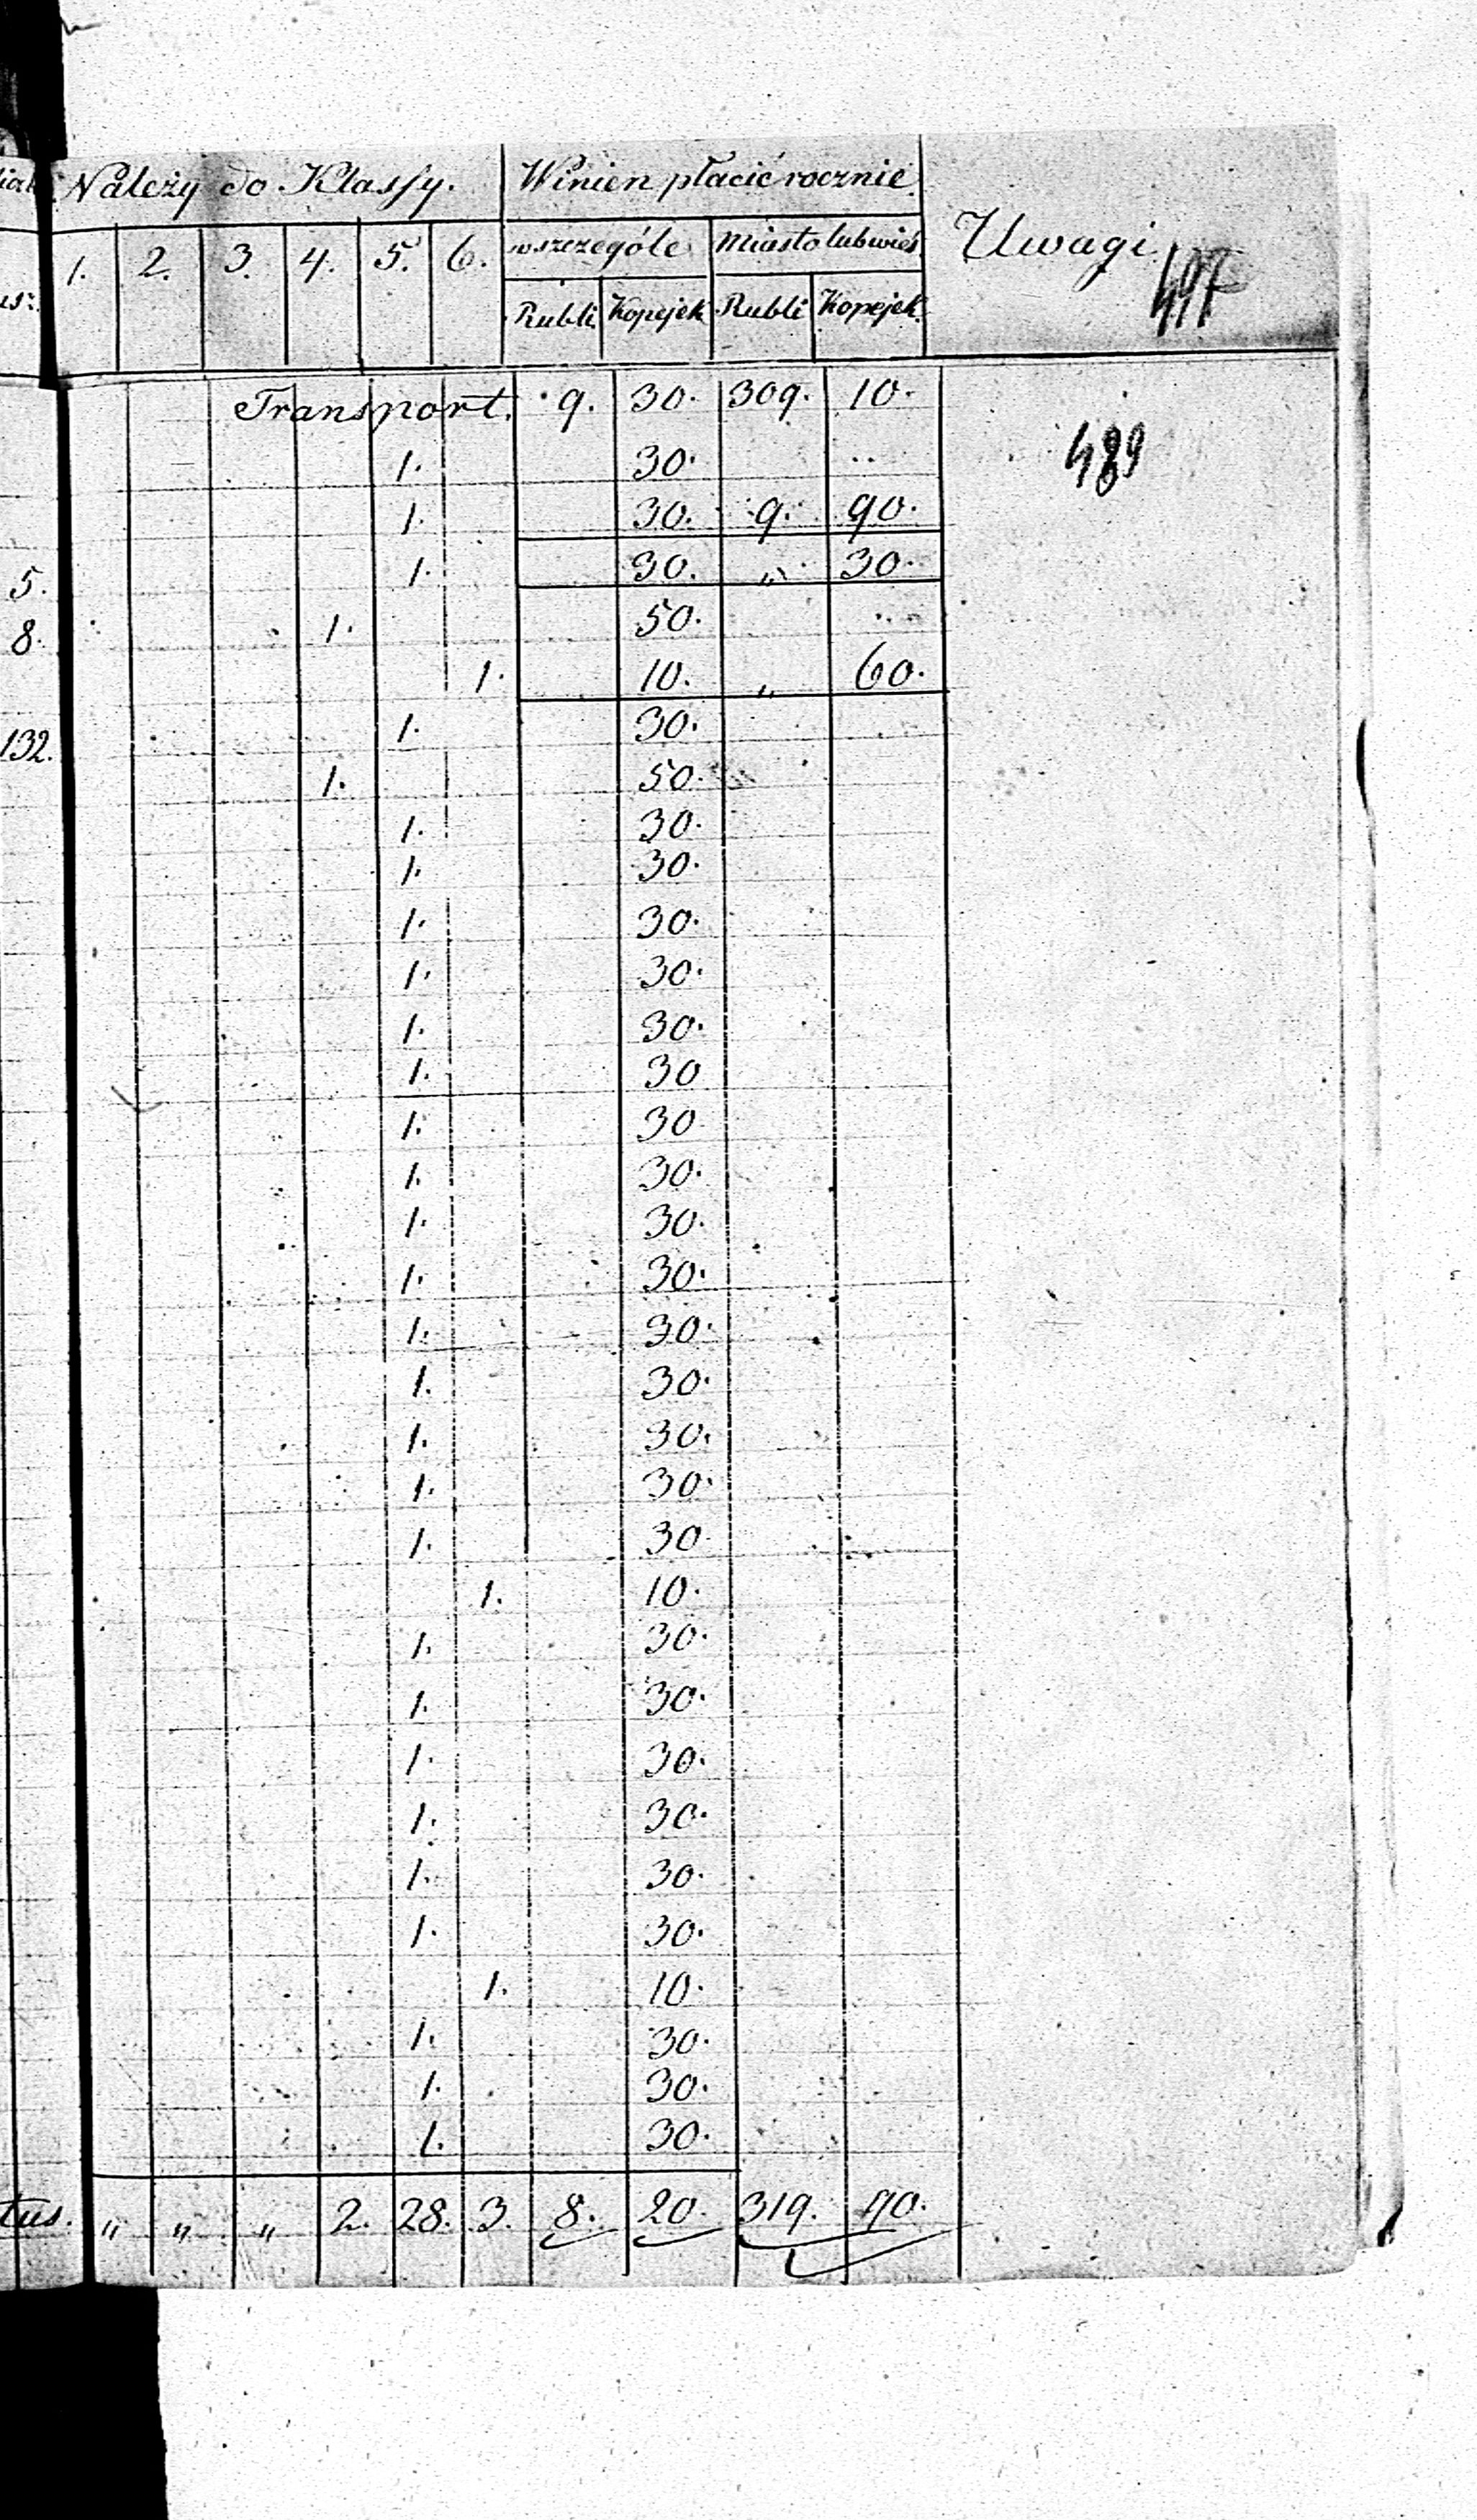 Należy do Klassy. Winien płacić rocznie. Uwagi
1. 2. 3. 4. 5. 6. wszczególe Miasto lub wieś
Rubli Kopejek Rubli Kopejek
Transport. 9. 30. 309. 10.
489
1. 30.
1. 30. 9. 90.
5. 1. 30. „ 30.
8. 1. 50.
1. 10. „ 60.
132. 1. 30.
1. 50.
1. 30.
1. 30.
1. 30.
1. 30.
1. 30.
1. 30
1. 30
1. 30.
1. 30.
1. 30.
1. 30.
1. 30.
1. 30.
1. 30.
1. 30
1. 10.
1. 30.
1. 30.
1. 30.
1. 30.
1. 30.
1. 30.
1. 10.
1. 30.
1. 30.
1. 30.
tus. „ „ „ 2. 28. 3. 8. 20. 319. 90.